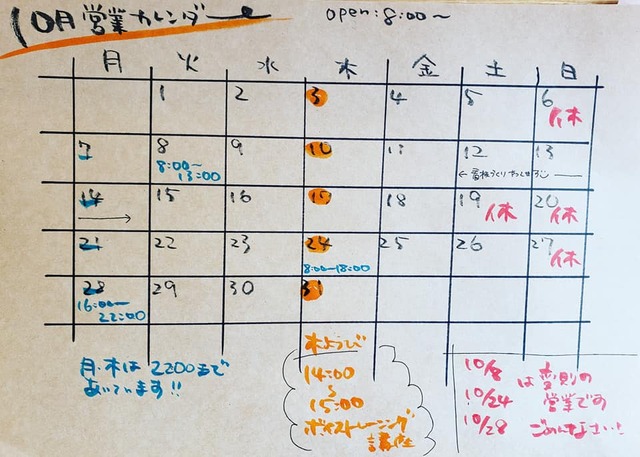 10月営業カレンダー
open:8:00〜
月 火 水 木 金 土 日
1 2 3 4 5 6
休
7 8 9 10 11 12 13
8:00〜
13:00
14 15 16 17 18 19 20
休 休
21 22 23 24 25 26 27
8:00〜18:00
休
28 29 30 31
16:00〜
22:00
月・木は2200まで
あいています!!
木ようび
14:00
〜
15:00
ボイストレーニング
講座
10/8
10/24
10/28
は変則の
営業です
ごめんなさい!